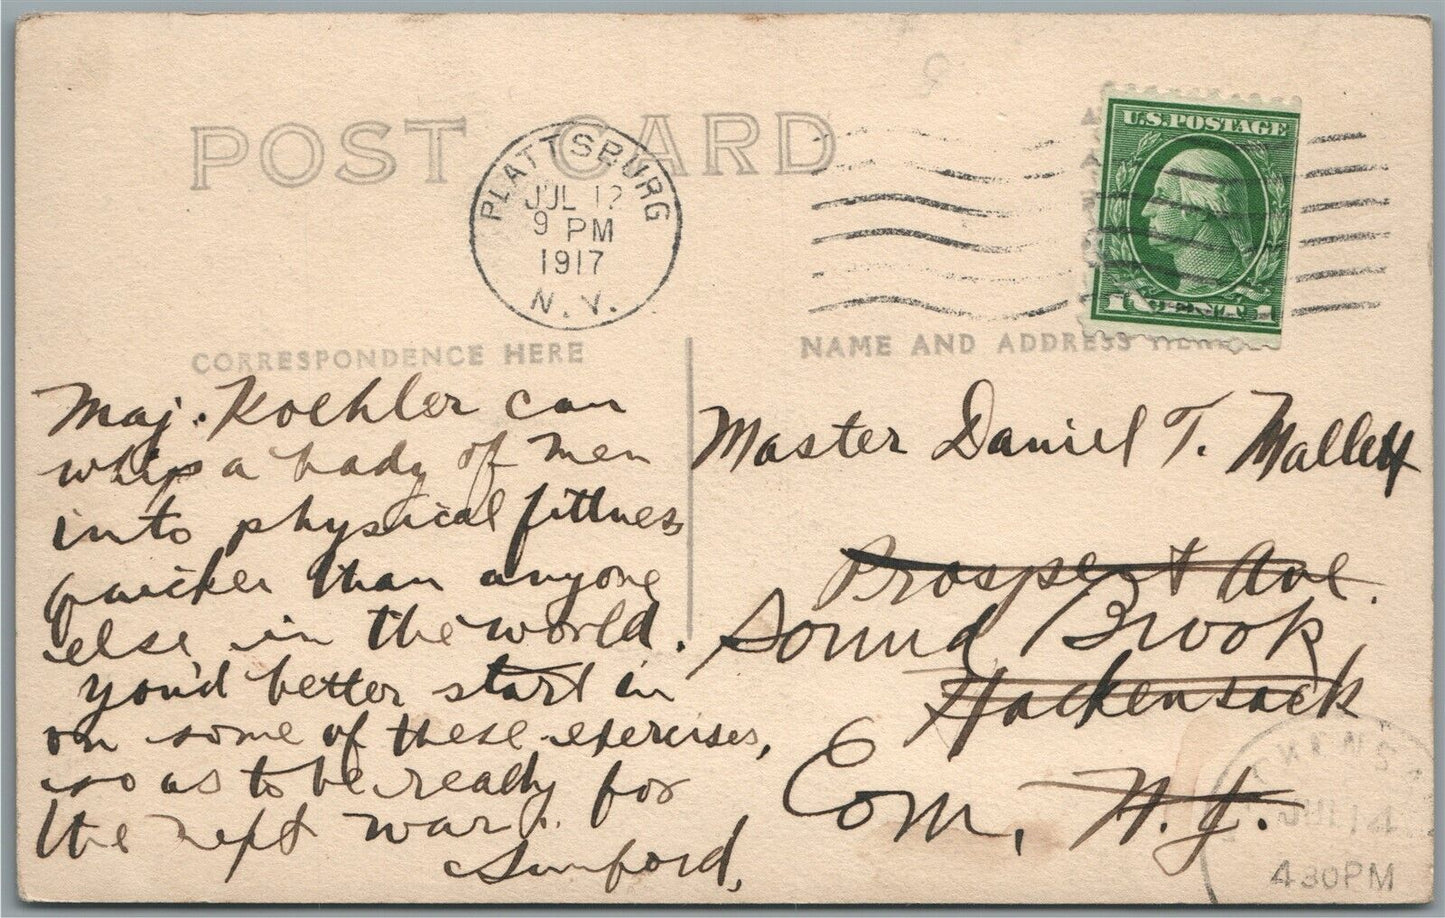 POST CARD
PLATTSBURG
JUL 12
9 PM
1917
N.Y.
U.S. POSTAGE
CORRESPONDENCE HERE
NAME AND ADDRESS HERE
Maj. Koehler can
whip a body of men
into physical fittness
quicker than anyone
else in the world.
You'd better start in
on some of these exercises,
so as to be ready for
the next war.
Sanford,
Master Daniel T. Mallett
Prospect Ave.
Sound Brook
Hackensack
Conn, N.J.
JUL 14
4 30 PM